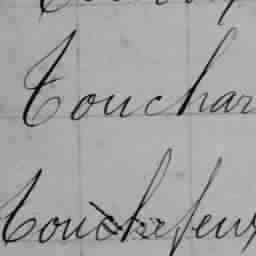 Touchar
Touchefeux